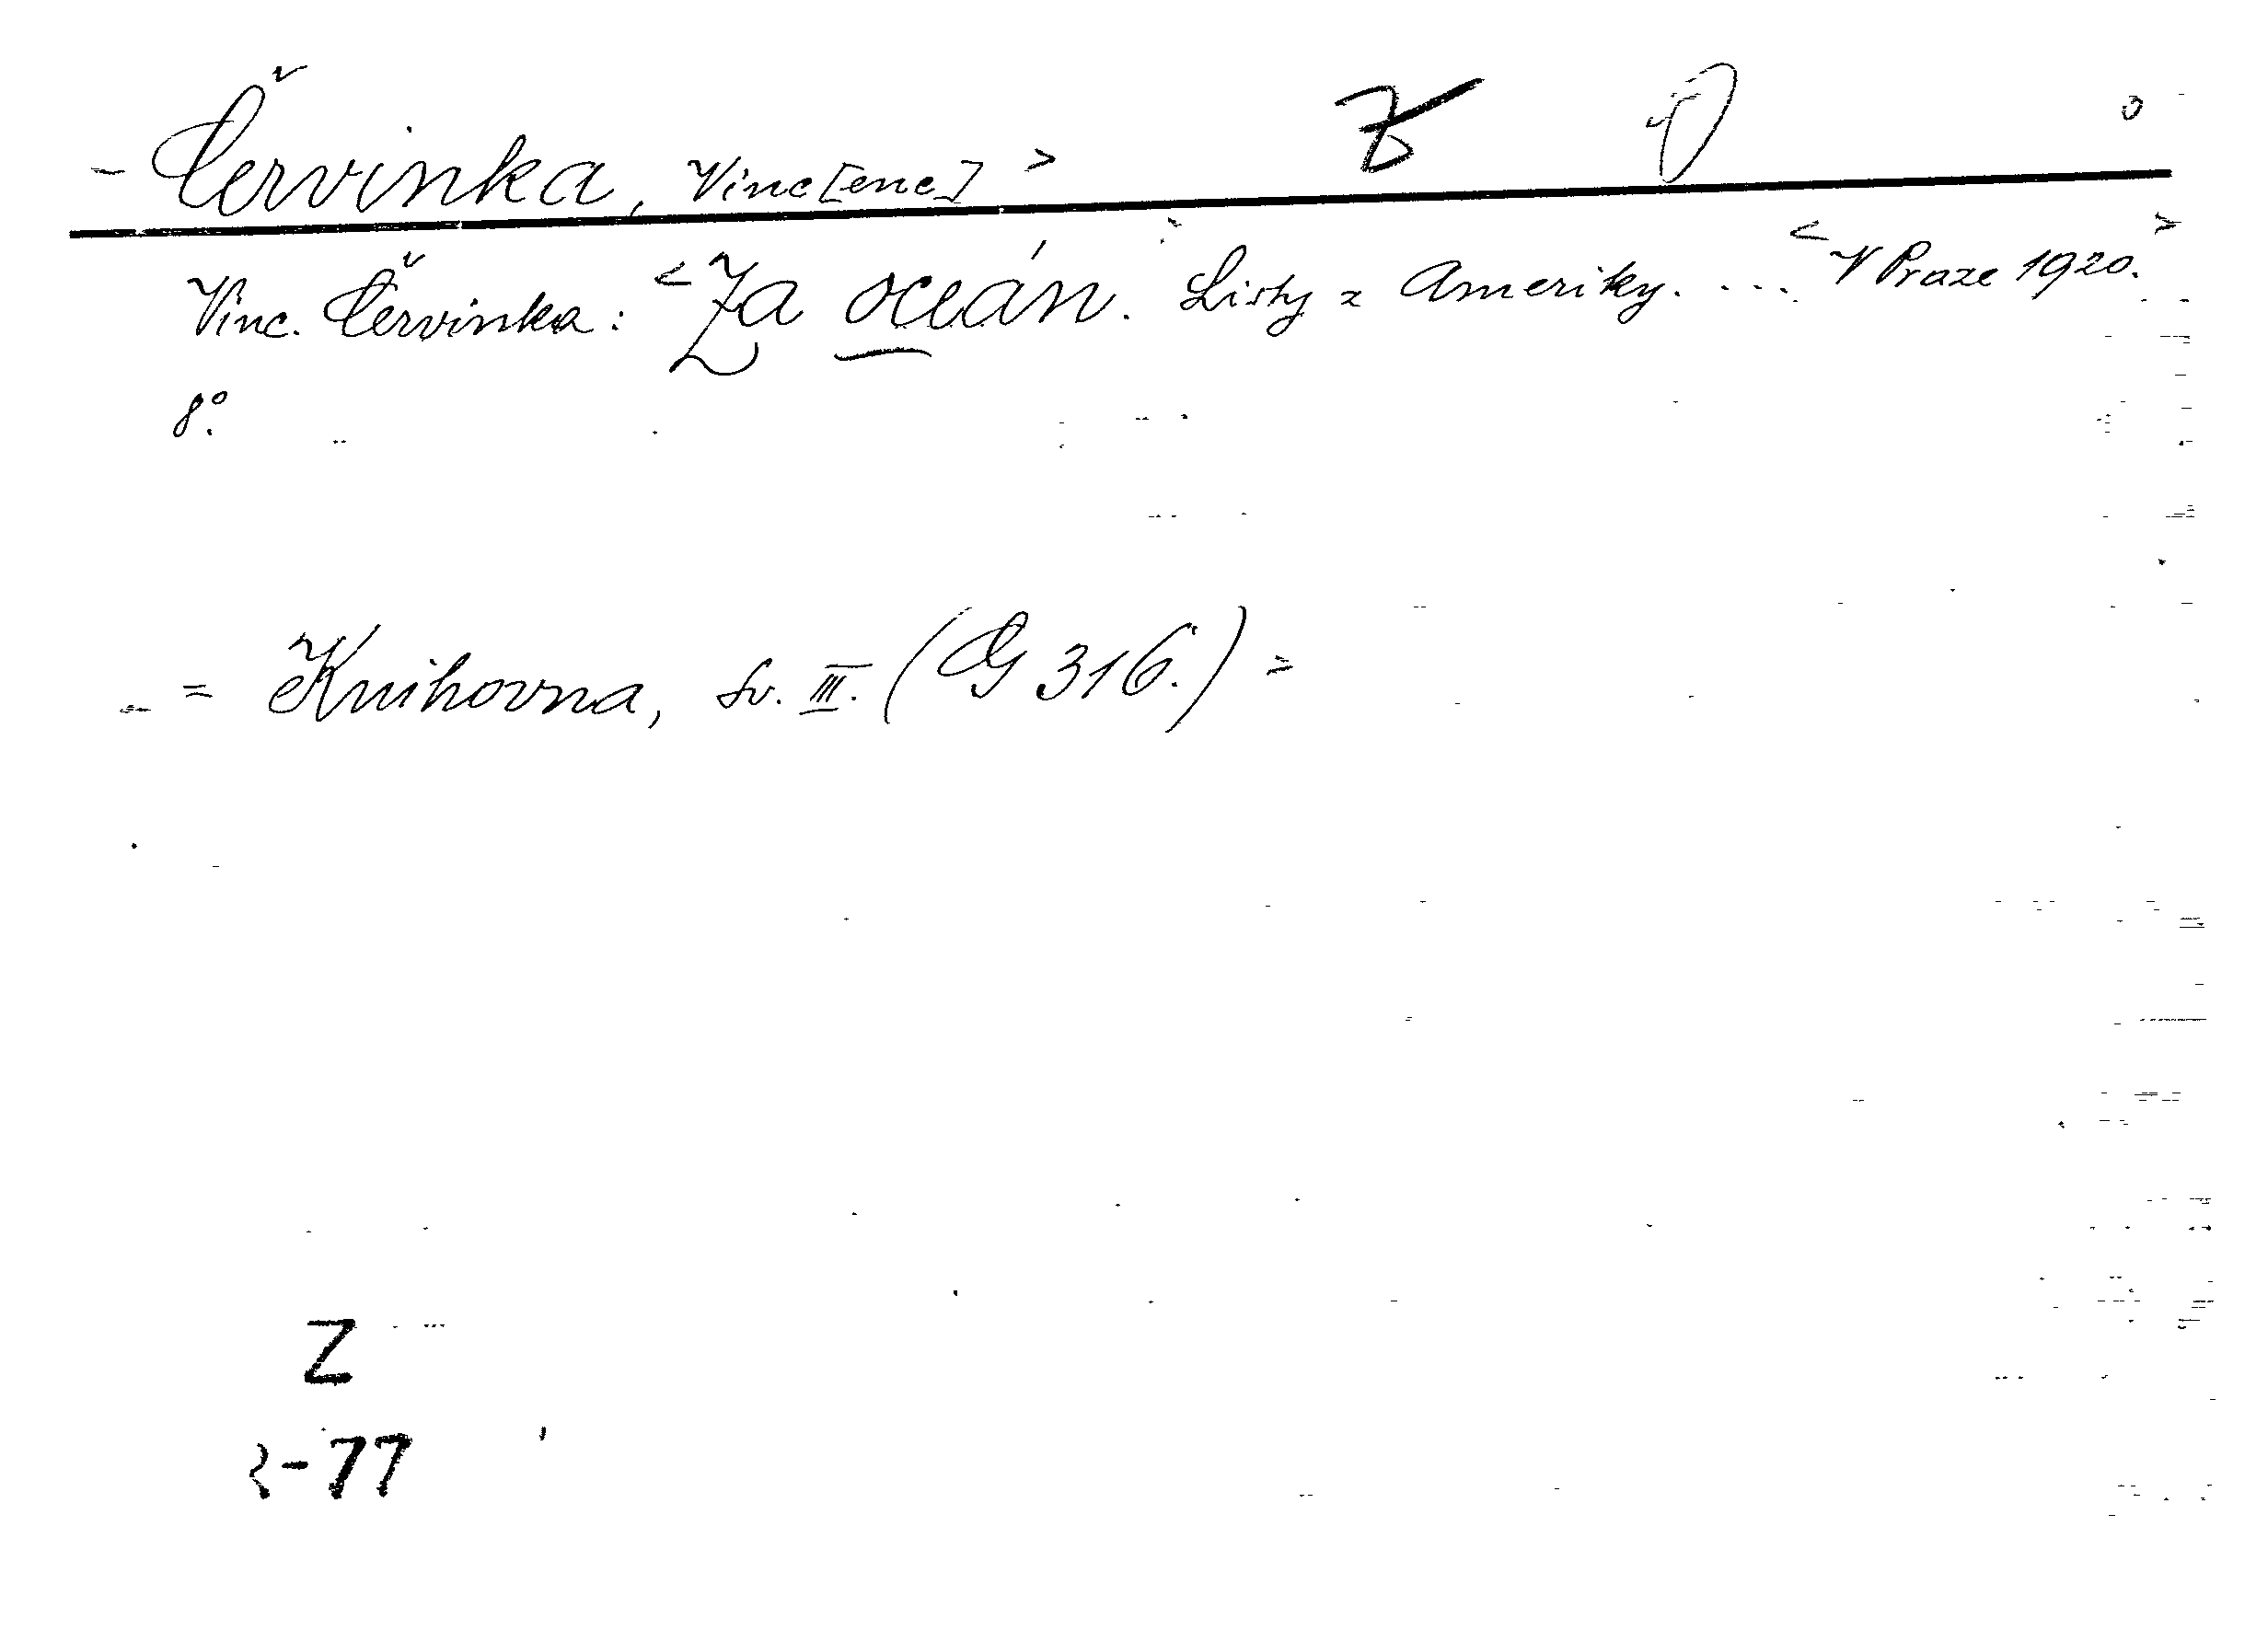 - Červinka, Vinc[enc] >
Vinc. Červinka: < Za oceán. Listy z Ameriky. ... < V Praze 1920. >
8°.
= Knihovna, sv. III. (G 316.) >
Z
-77